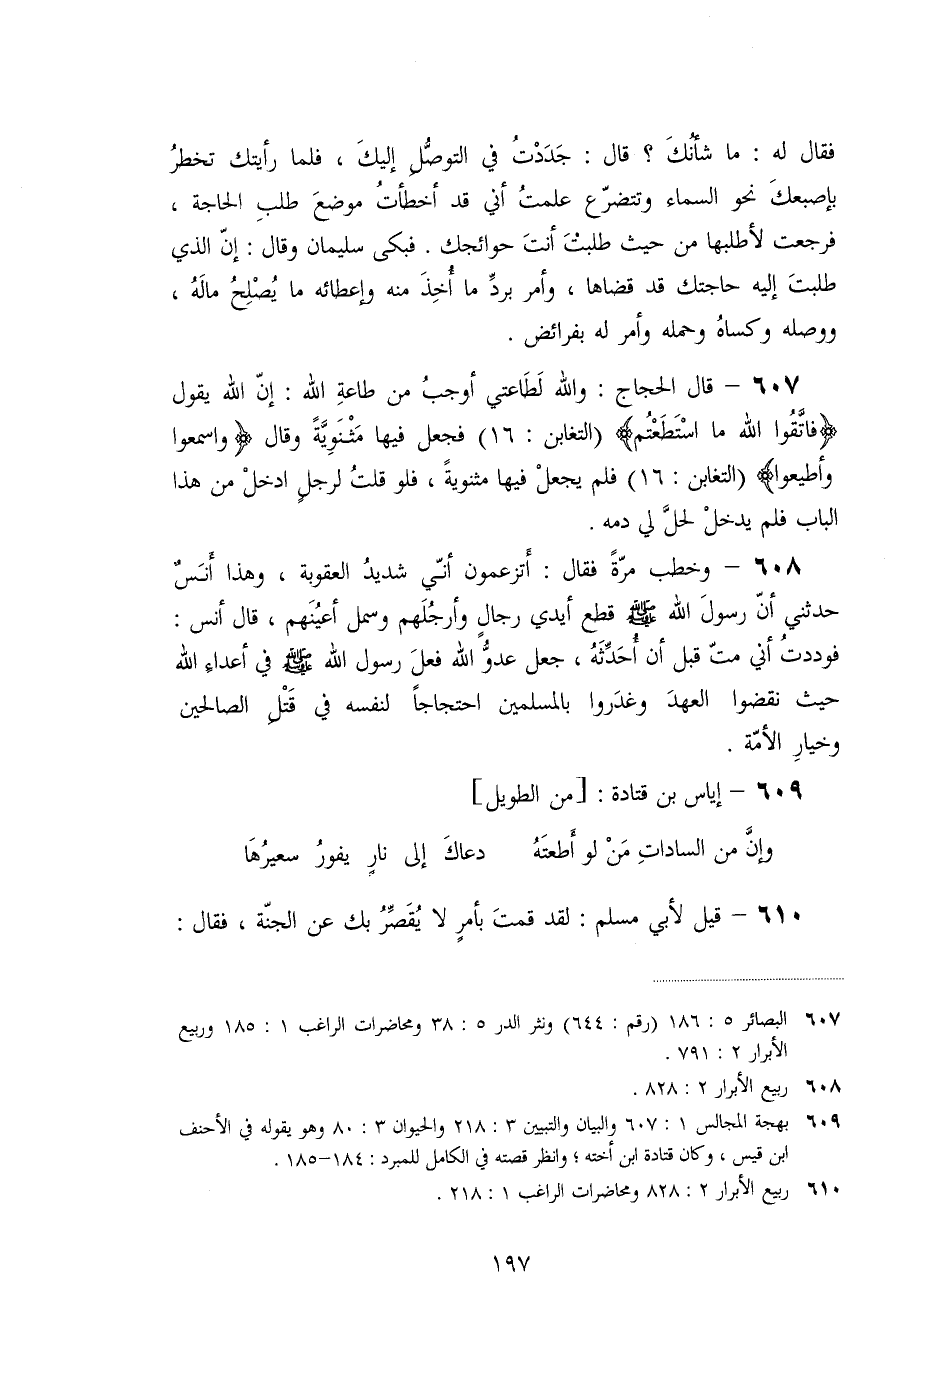 فقال له : ما شأنُكَ ؟ قال : جَدَدْتُ في التوصُّلِ إليكَ ، فلما رأيتك تخطرُ
بإصبعكَ نحو السماء وتتضرّع علمتُ أني قد أخطأتُ موضعَ طلبِ الحاجة ،
فرجعت لأطلبها من حيث طلبْتَ أنتَ حوائجك . فبكى سليمان وقال : إنّ الذي
طلبتَ إليه حاجتك قد قضاها ، وأمر بردِّ ما أُخِذَ منه وإعطائه ما يُصْلِحُ مالَهُ ،
ووصله وكساهُ وحمله وأمر له بفرائض .
٦٠٧ – قال الحجاج : والله لَطَاعتي أوجبُ من طاعةِ الله : إنّ الله يقول
﴿فاتَّقُوا الله ما اسْتَطَعْتُم﴾ (التغابن : ١٦) فجعل فيها مَثْنَوِيَّةً وقال ﴿واسمعوا
وأطيعوا﴾ (التغابن : ١٦) فلم يجعلْ فيها مثنويةً ، فلو قلتُ لرجلٍ ادخلْ من هذا
الباب فلم يدخلْ لحلَّ لي دمه .
٦٠٨ – وخطب مرّةً فقال : أَتزعمون أنّي شديدُ العقوبة ، وهذا أَنَسٌ
حدثني أنّ رسولَ الله ﷺ قطع أيدي رجالٍ وأرجُلَهم وسمل أعيُنَهم ، قال أنس :
فوددتُ أني متّ قبل أن أُحَدِّثَهُ ، جعل عدوُّ الله فعلَ رسول الله ﷺ في أعداءِ الله
حيث نقضوا العهدَ وغدَروا بالمسلمين احتجاجاً لنفسه في قَتْلِ الصالحين
وخيارِ الأمّة .
٦٠٩ – إياس بن قتادة : [من الطويل]
وإنَّ من الساداتِ مَنْ لو أَطعتَهُ دعاكَ إلى نارٍ يفورُ سعيرُهَا
٦١٠ – قيل لأبي مسلم : لقد قمتَ بأمرٍ لا يُقَصِّرُ بك عن الجنّة ، فقال :
٦٠٧ البصائر ٥ : ١٨٦ (رقم : ٦٤٤) ونثر الدر ٥ : ٣٨ ومحاضرات الراغب ١ : ١٨٥ وربيع
الأبرار ٢ : ٧٩١ .
٦٠٨ ربيع الأبرار ٢ : ٨٢٨ .
٦٠٩ بهجة المجالس ١ : ٦٠٧ والبيان والتبيين ٣ : ٢١٨ والحيوان ٣ : ٨٠ وهو يقوله في الأحنف
ابن قيس ، وكان قتادة ابن أخته ؛ وانظر قصته في الكامل للمبرد : ١٨٤–١٨٥ .
٦١٠ ربيع الأبرار ٢ : ٨٢٨ ومحاضرات الراغب ١ : ٢١٨ .
١٩٧